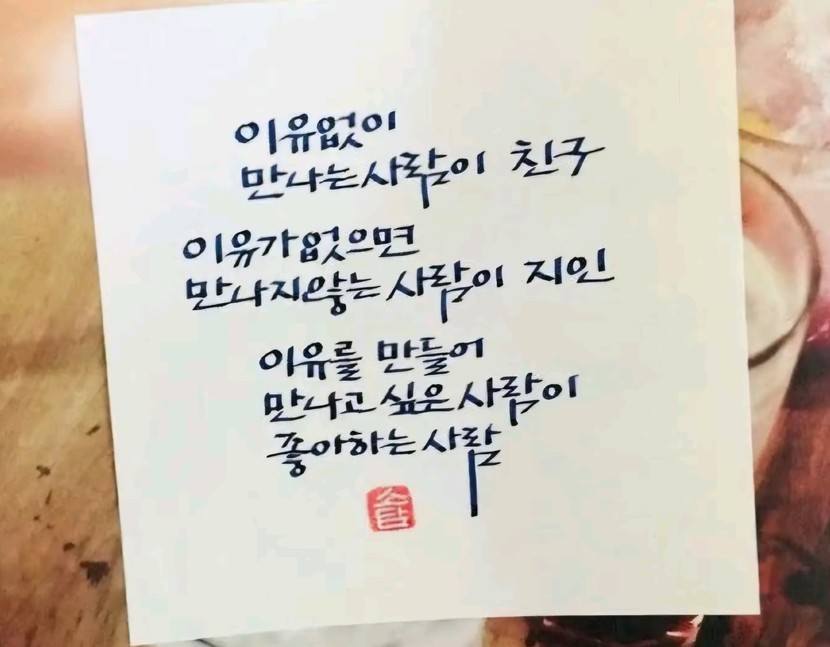 이유없이
만나는사람이 친구
이유가없으면
만나지않는 사람이 지인
이유를 만들어
만나고 싶은 사람이
좋아하는 사람
소담